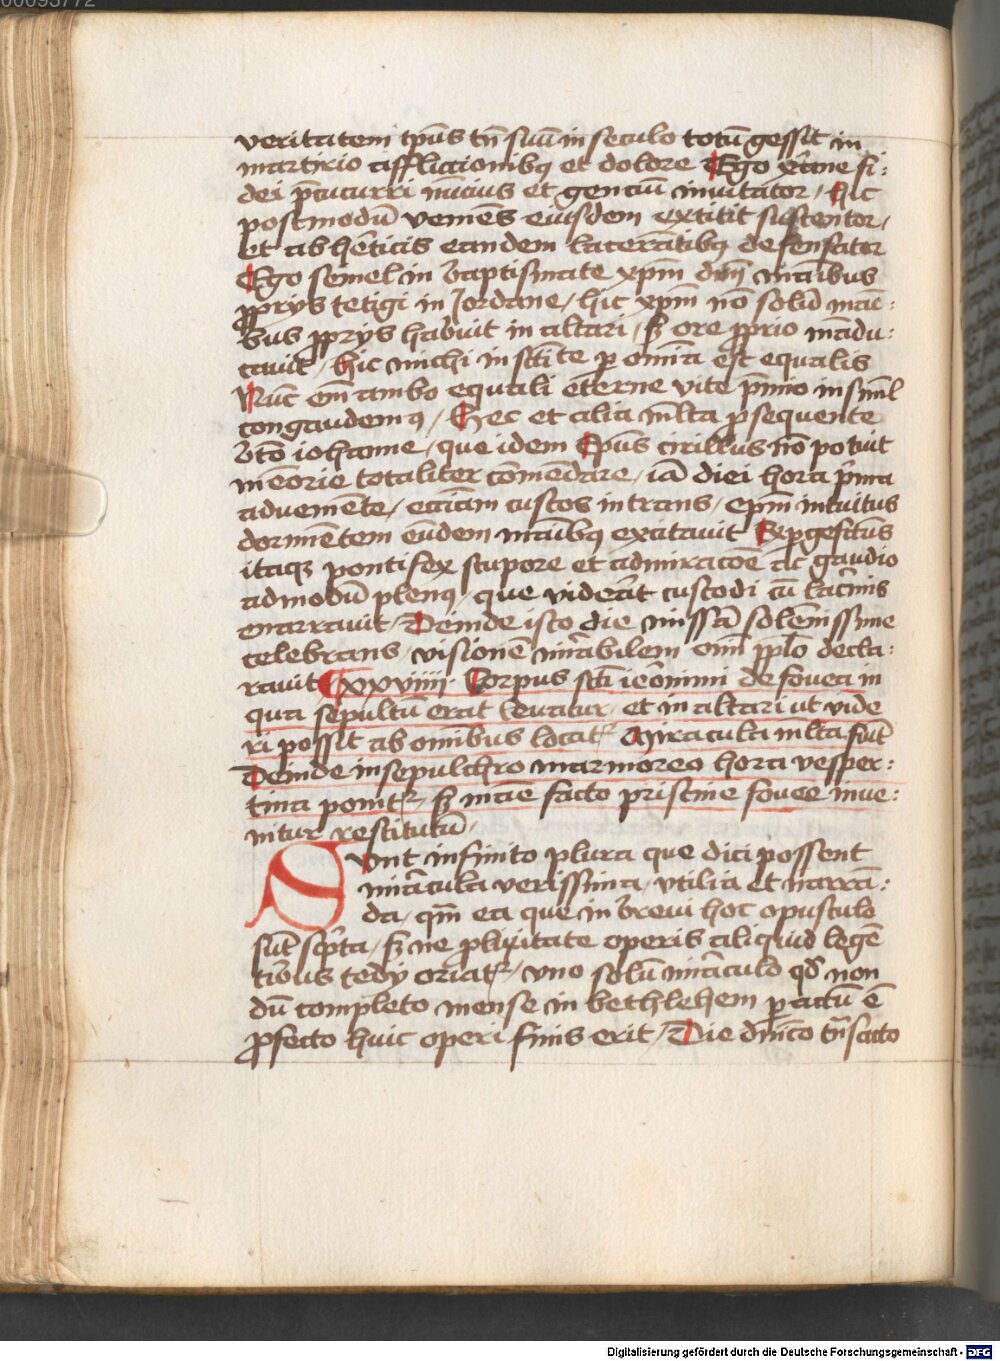 00093772
veritatem tp̄us tn̄ suū in seculo totū gessit in
martirio afflictionibꝯ et dolore Ego xp̄iane fi:
dei p̄cucurri nūcius et genciū inuitator / Hic
postmodū veniēs eiusdem extitit sustentor /
Et ab hēticis eandem lacerātibꝯ defensator
Ego semel in baptismate xp̄m dn̄m mānibus
ꝓprijs tetigi in Jordane / hic xp̄m nō solū māī:
bus ꝓprijs habuit in altari / sꝫ ore ꝓprio mādu:
cauit / hic michi in sc̄itate ꝑ om̄ia est equalis
Nūc em̄ ambo equali eterne vite p̄mio insiml̄
congaudemꝯ / Hec et alia ml̄ta ꝓsequente
bt̄o iohanne / que idem Ep̄us cirillus nō potuit
memorie totaliter cōmēdare / iā diei hora p̄ma
adueniēte / ecciam custos intrans / ep̄m intuitus
dormiētem eūdem māibꝯ excitauit Exꝑgefctūs
itaqꝫ pontifex stupore et admiracōe ac gaudio
admodū plenꝯ / que viderat custodi cū lacrīmis
enarrauit / Deinde isto die missā solēnissime
celebrans / visionē mirabilem om̄i ppl̄o decla:
rauit xxviiii Corpus sc̄ti ieronimi de fouea in
qua sepultū erat leuatur / et in altari ut vide
ri possit ab omībus locat᷑ Miracula ml̄ta fiūt
Deinde in sepulchro marmoreo hora vesper:
tina ponit᷑ / sꝫ māe facto pristine fouee inue:
nitur restitutū /
Sunt infinito plura que dici possent
miracula verissima / vtilia et narrā:
da / qm̄ ea que in breui hoc opusculo
sūt scp̄ta / sꝫ ne ꝓlixitate operis aliquid legē
tibus tedij oriat᷑ / vno solū miraculo qd̄ non
dū completo mense in bethlehem ꝑactū ē
ꝓfecto huic operi finis erit / Die dn̄ico tn̄sacto
Digitalisierung gefördert durch die Deutsche Forschungsgemeinschaft - DFG